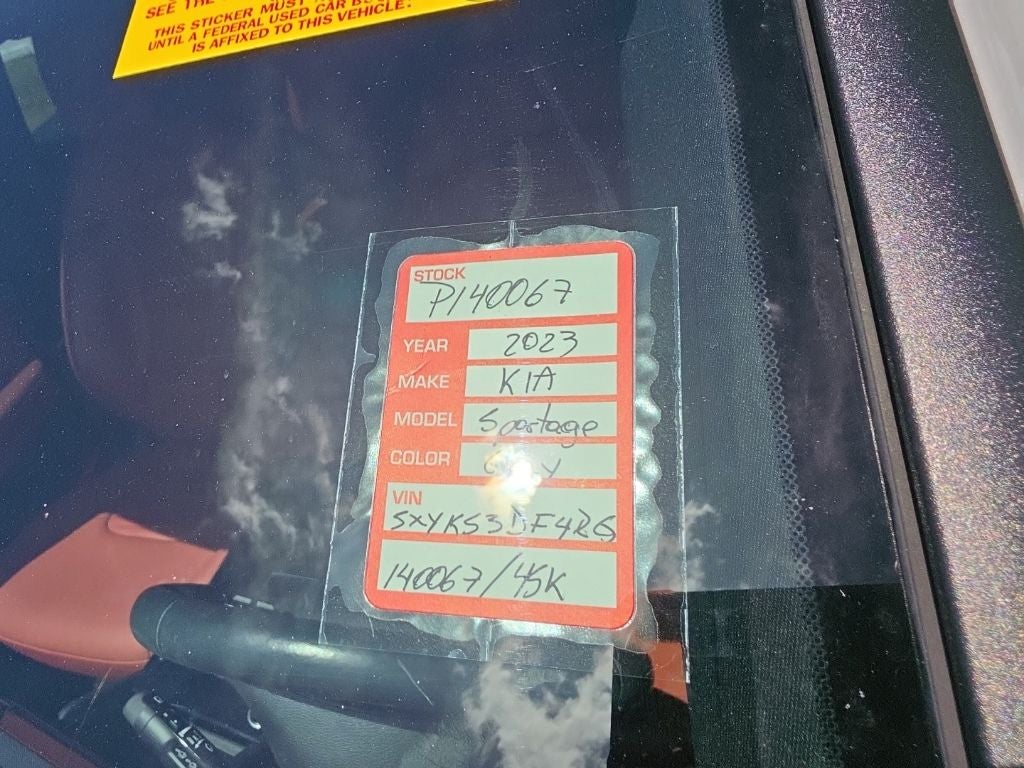 SEE THE
THIS STICKER MUST
UNTIL A FEDERAL USED CAR
IS AFFIXED TO THIS VEHICLE.
STOCK
P140067
YEAR 2023
MAKE KIA
MODEL Sportage
COLOR
VIN
5XYK53DF4RG
140067/45K